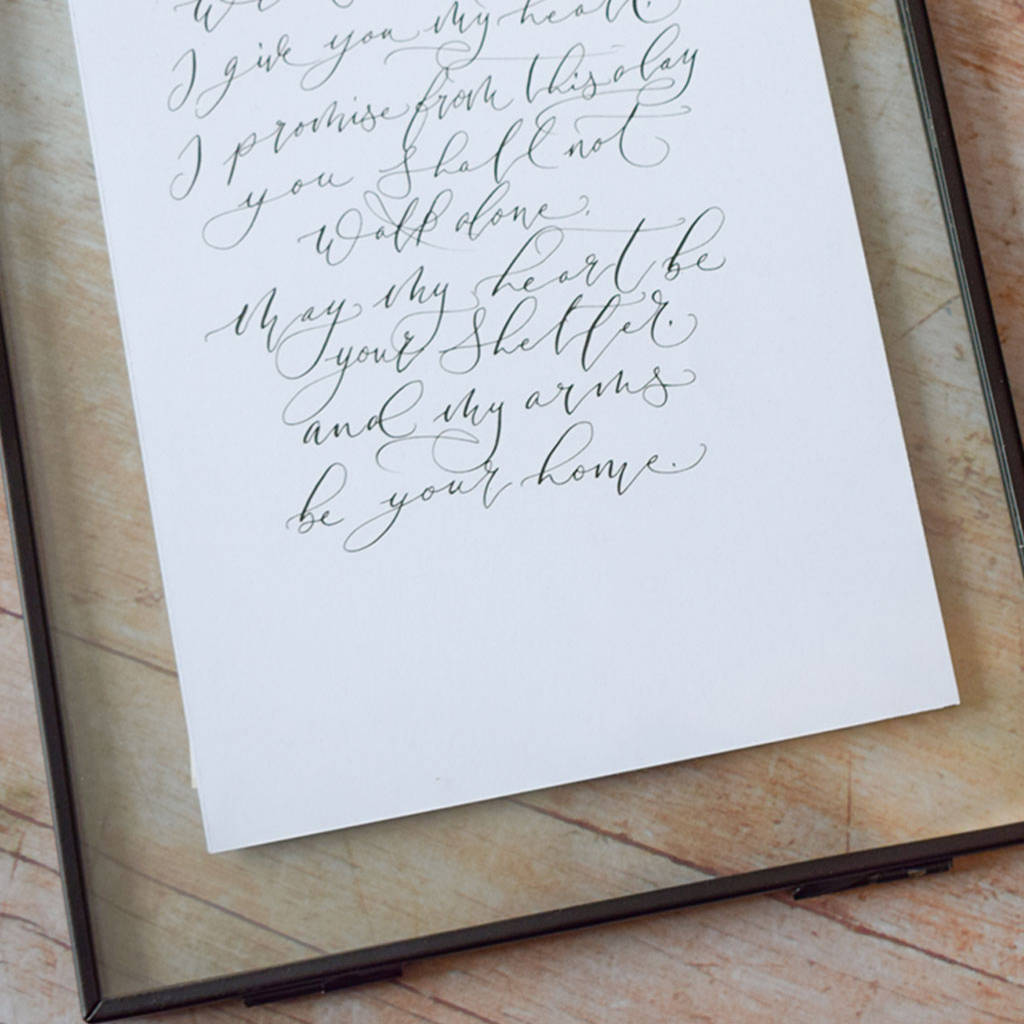 I give you my heart.
I promise from this day
you shall not
walk alone.
May my heart be
your shelter.
and my arms
be your home.